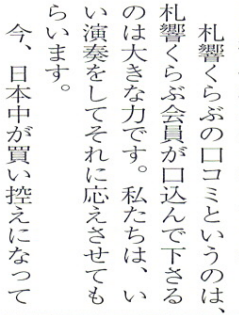 札響くらぶの口コミというのは、
札響くらぶ会員が口込んで下さる
のは大きな力です。私たちは、い
い演奏をしてそれに応えさせても
らいます。
今、日本中が買い控えになって